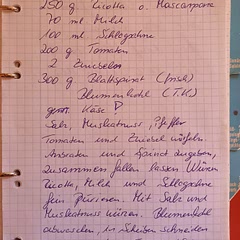 250 g Ricotta o. Mascarpone
70 ml Milch
100 ml Schlagsahne
200 g Tomaten
2 Zwiebeln
300 g Blattspinat (frisch)
Blumenkohl (T.K)
Käse
Salz, Muskatnuss, Pfeffer
Tomaten und Zwiebel würfeln
Anbraten und Spinat zugeben,
zusammen fallen lassen. Würzen
Ricotta, Milch und Schlagsahne
fein pürieren. Mit Salz und
Muskatnuss würzen. Blumenkohl
abwaschen, in Scheiben schneiden